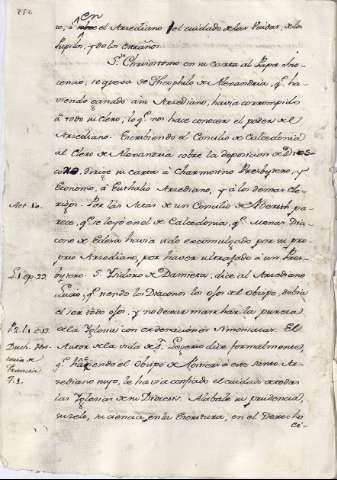 en
ro, à el Arcediano el cuidado de las Viudas, de los
Pupilos, y de los extraños.
S.n Chrisostomo en su carta al Papa Ino-
cencio, se quexa de Theophilo de Alexandria, q.e ha-
viendo ganado a su Arcediano, havia corrompido
à todo su clero, lo q.e nos hace conocer el poder del
Arcediano. Escribiendo el Concilio de Calcedonia
al Clero de Alexandria sobre la deposicion de Dios-
coro, dirige su carta à Charmosino Presbytero, y
Economo, à Euthalio Arcediano, y à los demas cle-
rigos. Por las Actas de un Concilio de
rece, q.e se leyó en el de Calcedonia, q.e Maras Dia-
cono de Edesa havia sido excomulgado por su pro-
pio Arcediano, por haver ultrajado à un Pres-
bytero. S. Ysidoro de Damieta, dice al Arcediano
Lucio, q.e siendo los Diaconos los ojos del obispo, debia
el ser todo ojos, y no devia manchar la pureza
de la Yglesia con ordenaciones Simoniacas. El
Autor de la vida de S. Leg.erio dice formalmente,
q.e haciendo el obispo de Poitiers à este santo Ar-
cediano suyo, le havia confiado el cuidado de todas
las Yglesias de su Diocesis. Alabale su prudencia,
su zelo, su ciencia en la Escritura, en el Derecho
ci-
Act. 10.
L. 1. ep. 29
Historia de
Francia
T. 1.